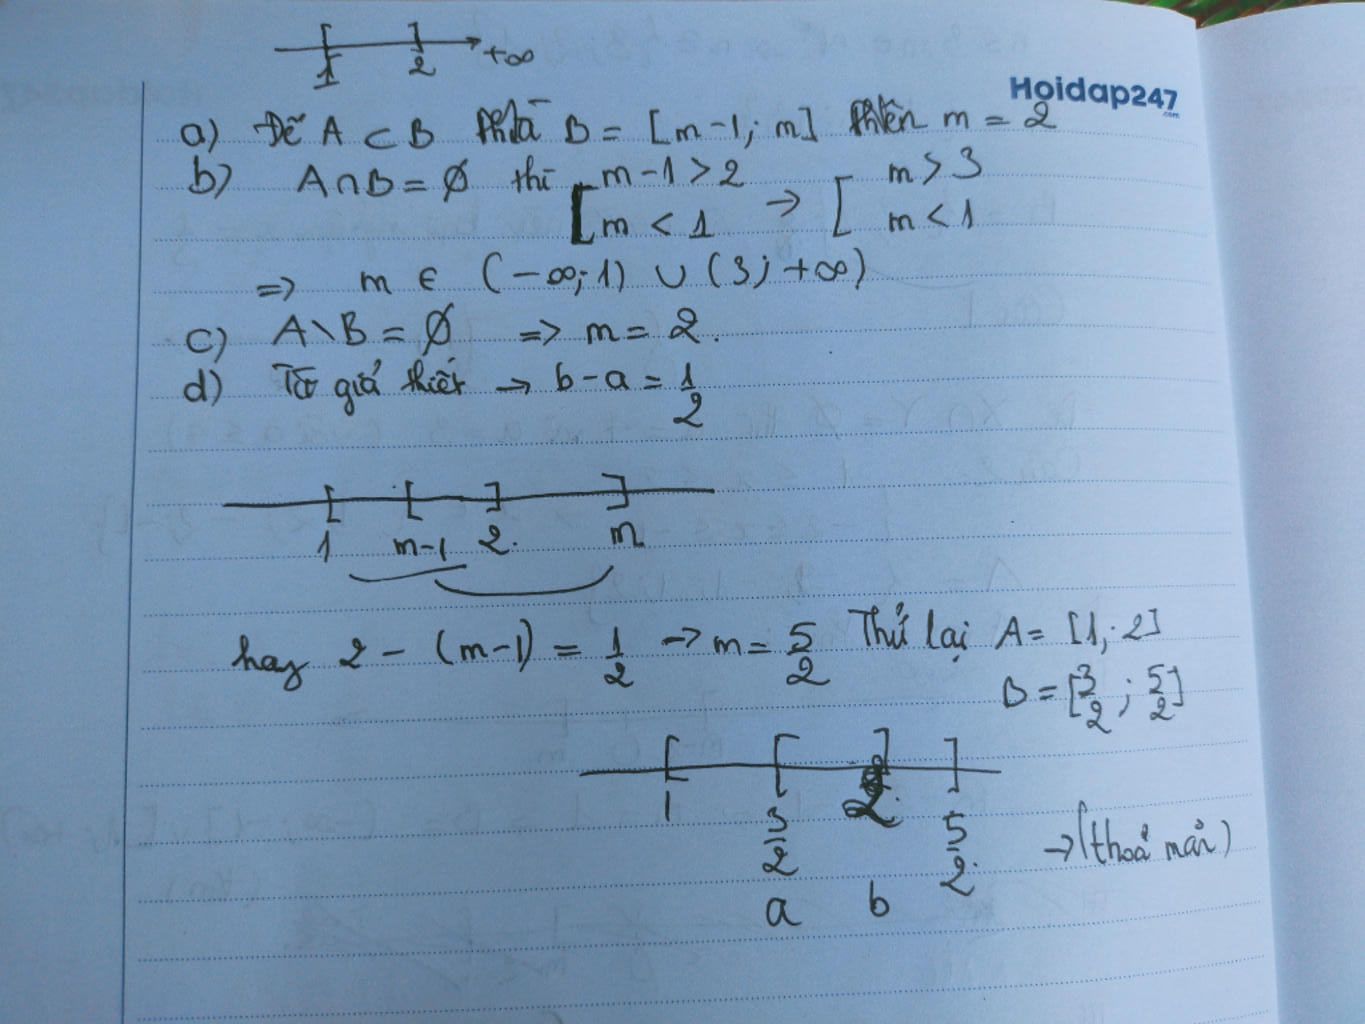 [ ] +∞
1 2
Hoidap247
.com
a) Để A ⊂ B mà B = [m-1; m] nên m = 2
b) A∩B = ∅ thì [ m-1 > 2 → [ m > 3
m < 1 m < 1
=> m ∈ (-∞; 1) ∪ (3; +∞)
c) A\B = ∅ => m = 2.
d) Từ giả thiết → b-a = 1/2
[ [ ] ]
1 m-1 2. m
hay 2 - (m-1) = 1/2 → m = 5/2 Thử lại A = [1; 2]
B = [3/2; 5/2]
[ [ ] ]
1 3/2 2. 5/2 → (thoả mãn)
a b